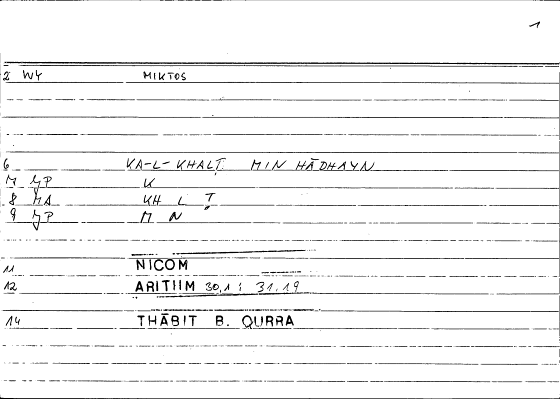 1
2 WY MIKTOS
6 KA-L-KHALṬ MIN HĀDHAYN
M JP K
8 MA KH L Ṭ
9 JP M N
11 NICOM
12 ARITIIM 30,1 : 31.19
14 THĀBIT B. QURRA